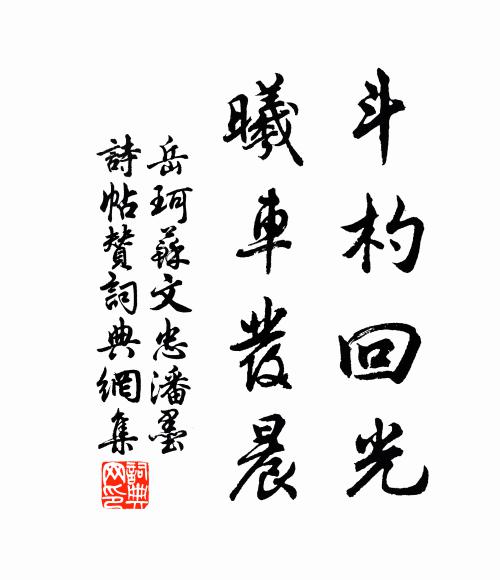 斗杓回光
曦車發晨
岳珂蘇文忠潘墨
詩帖贊詞典網集
詞典网印